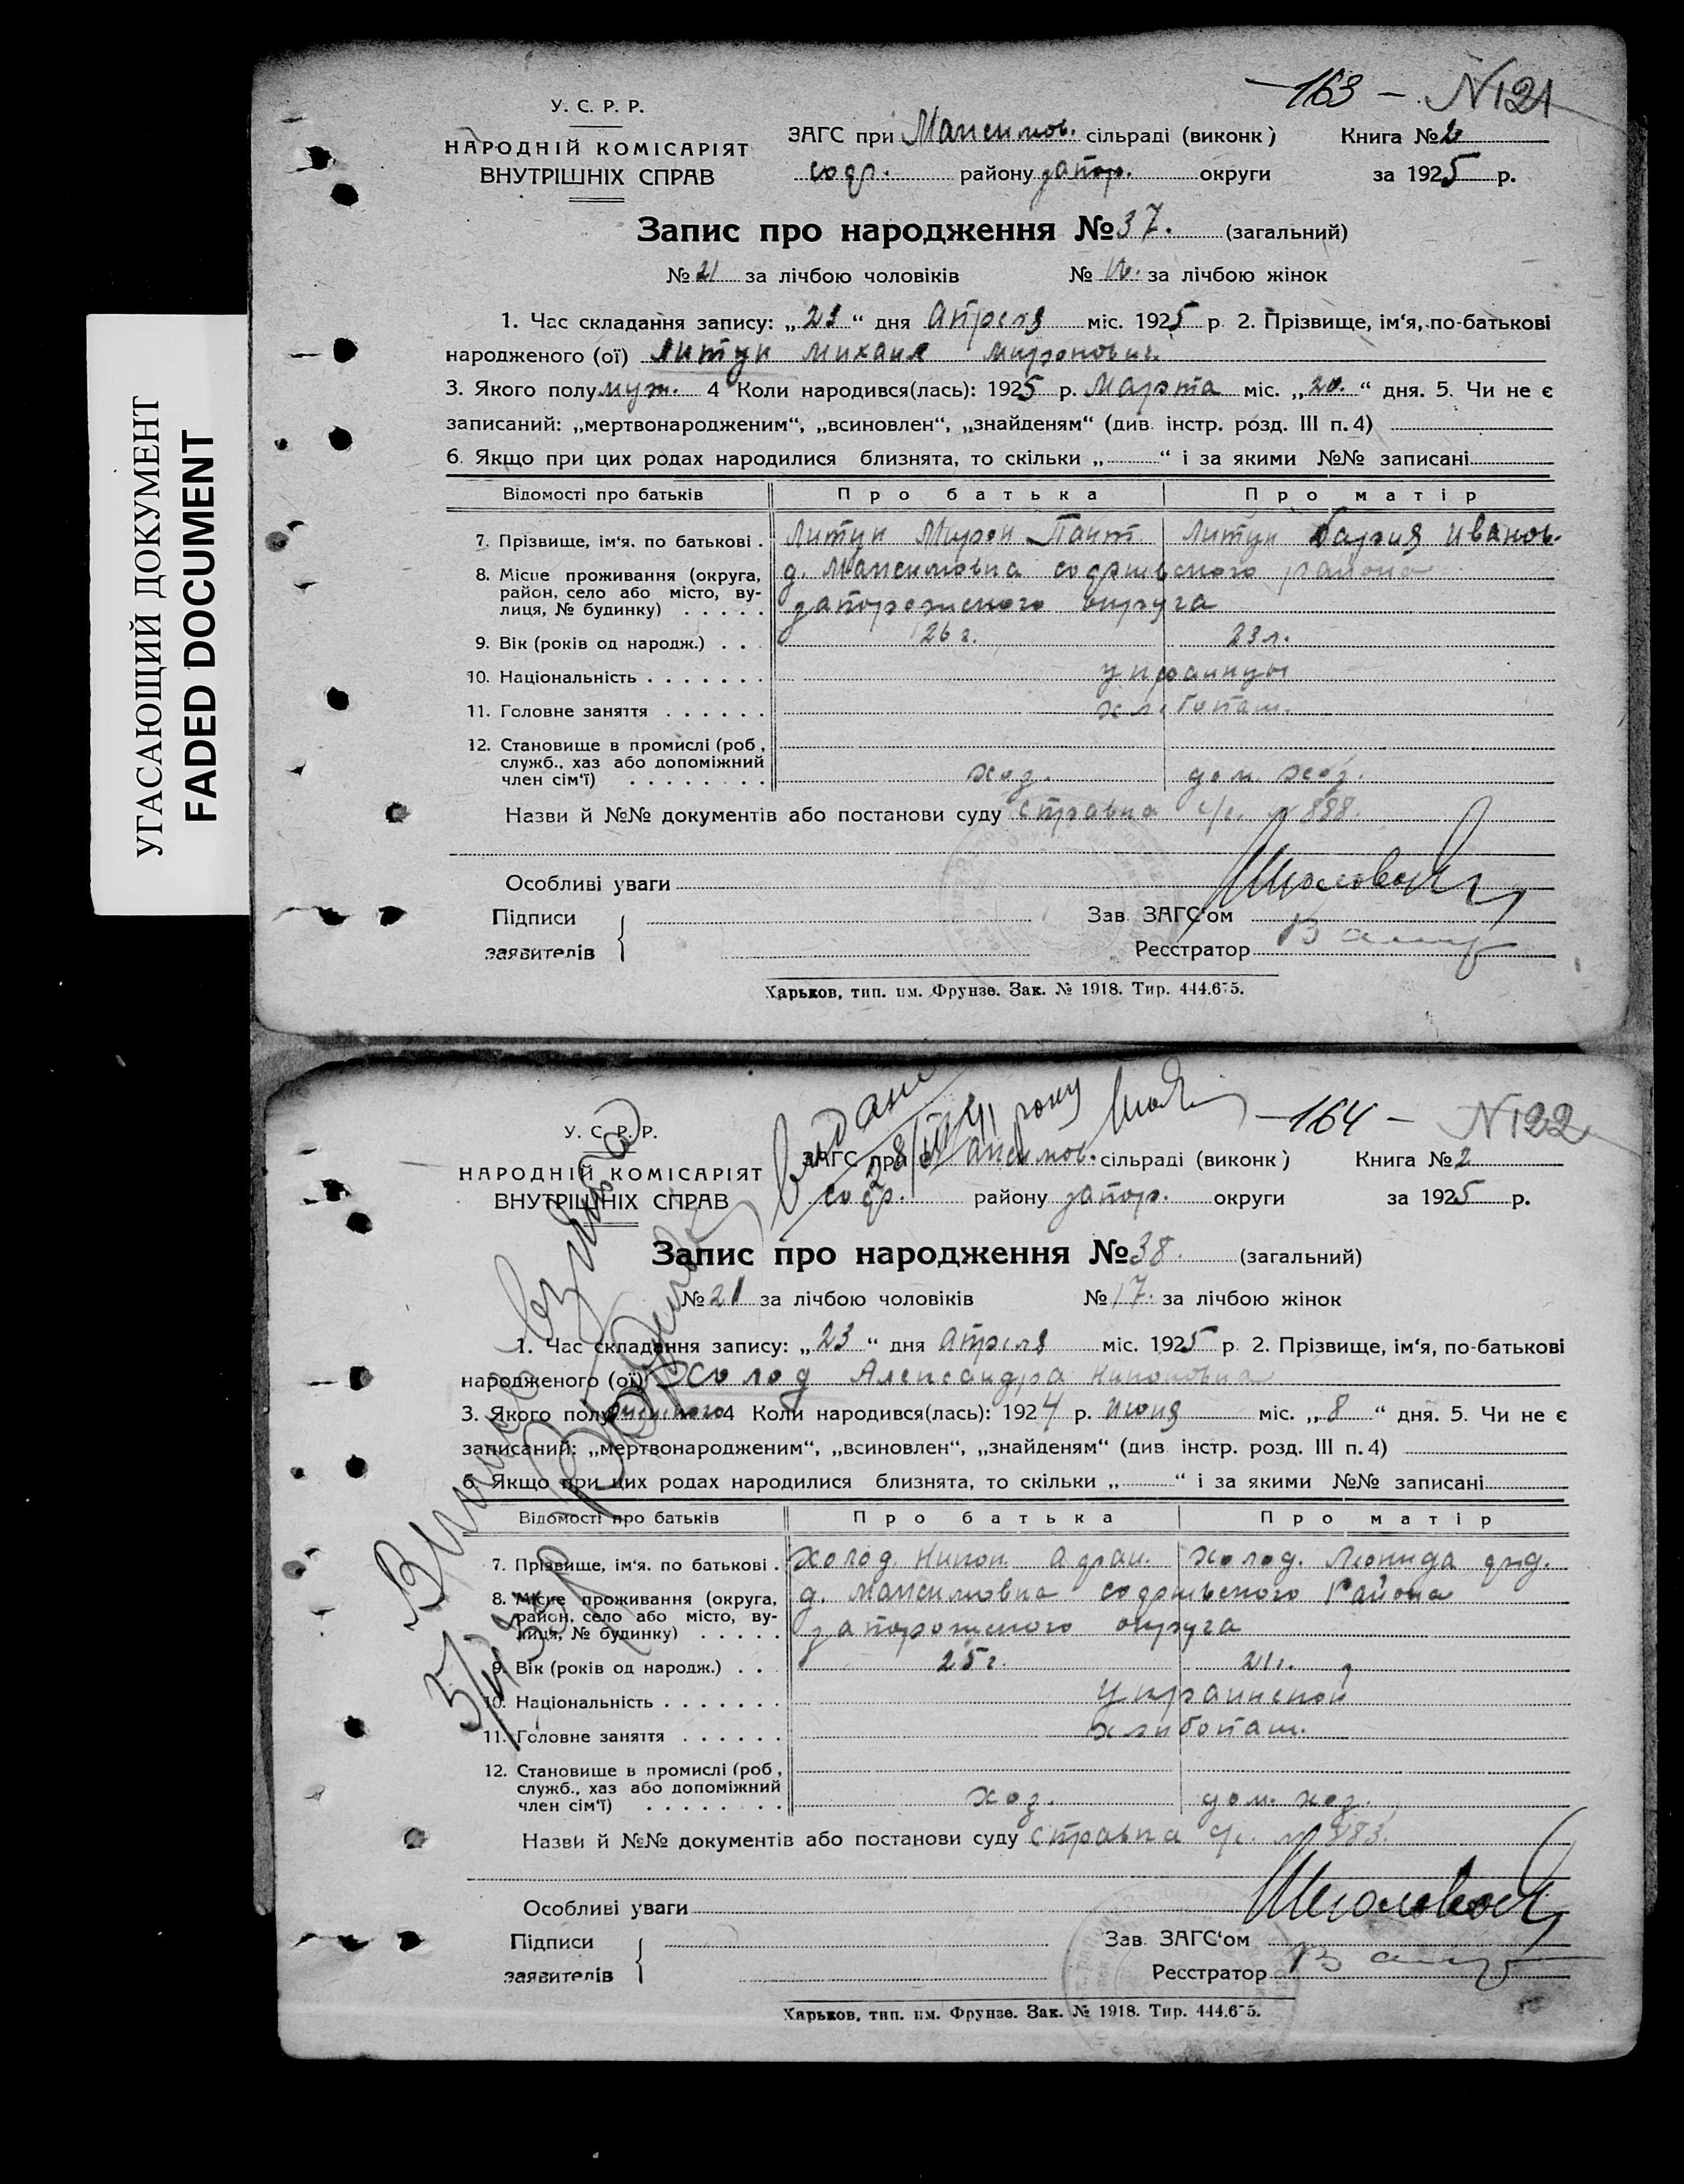 УГАСАЮЩИЙ ДОКУМЕНТ
FADED DOCUMENT
— 163 — № 121
У. С. Р. Р.
НАРОДНІЙ КОМІСАРІЯТ
ВНУТРІШНІХ СПРАВ
ЗАГС при Максимов. сільраді (виконк) Книга № 2
софр. району запор. округи за 1925 р.
Запис про народження № 37. (загальний)
№ 21 за лічбою чоловіків № 16. за лічбою жінок
1. Час складання запису: „23“ дня Апреля міс. 1925 р. 2. Прізвище, ім‘я, по-батькові
народженого (ої) Литун Михаил Миронович.
3. Якого полу муж. 4 Коли народився(лась): 1925 р. Марта міс. „20.“ дня. 5. Чи не є
записаний: „мертвонародженим“, „всиновлен“, „знайденям“ (див. інстр. розд. III п. 4)
6. Якщо при цих родах народилися близнята, то скільки „ “ і за якими №№ записані
Відомості про батьків Про батька Про матір
7. Прізвище, ім‘я. по батькові . Литун Мирон Пант Литун Дария Иванов.
8. Місце проживання (округа, д. Максимовка софиевского района
район, село або місто, ву-
лиця, № будинку) . . . . . запорожского округа
9. Вік (років од народж.) . . . 26 г. 23 л.
10. Національність . . . . . . . украинцы
11. Головне заняття . . . . . . хлібопаш.
12. Становище в промислі (роб.,
служб., хаз або допоміжний
член сім‘ї) . . . . . . . . хоз. дом. хоз.
Назви й №№ документів або постанови суду справка с/с. № 888.
Особливі уваги
Підписи Зав. ЗАГС‘ом
заявителів Ресстратор
Харьков, тип. им. Фрунзе. Зак. № 1918. Тир. 444.675.
видане
28/III 41 року
— 164 — № 122
У. С. Р. Р.
НАРОДНІЙ КОМІСАРІЯТ
ВНУТРІШНІХ СПРАВ
ЗАГС при Максимов. сільраді (виконк) Книга № 2
софр. району запор. округи за 1925 р.
Запис про народження № 38. (загальний)
№ 21 за лічбою чоловіків № 17. за лічбою жінок
1. Час складання запису: „23“ дня Апреля міс. 1925 р. 2. Прізвище, ім‘я, по-батькові
народженого (ої) Холод Александра Никоновна
3. Якого полу женского 4 Коли народився(лась): 1924 р. Июня міс. „8“ дня. 5. Чи не є
записаний: „мертвонародженим“, „всиновлен“, „знайденям“ (див. інстр. розд. III п. 4)
6. Якщо при цих родах народилися близнята, то скільки „ “ і за якими №№ записані
Відомості про батьків Про батька Про матір
7. Прізвище, ім‘я. по батькові . Холод Никон Холод.
8. Місце проживання (округа, д. Максимовка софиевского Района
район, село або місто, ву-
лиця, № будинку) . . . . . запорожского округа
9. Вік (років од народж.) . . 25 г. 21 г.
10. Національність . . . . . . . украинской
11. Головне заняття . . . . . . хлибопаш.
12. Становище в промислі (роб.,
служб., хаз або допоміжний
член сім‘ї) . . . . . . . . хоз. дом. хоз.
Назви й №№ документів або постанови суду справка с/с. № 883.
Особливі уваги
Підписи Зав. ЗАГС‘ом
заявителів Ресстратор
Харьков, тип. им. Фрунзе. Зак. № 1918. Тир. 444.675.